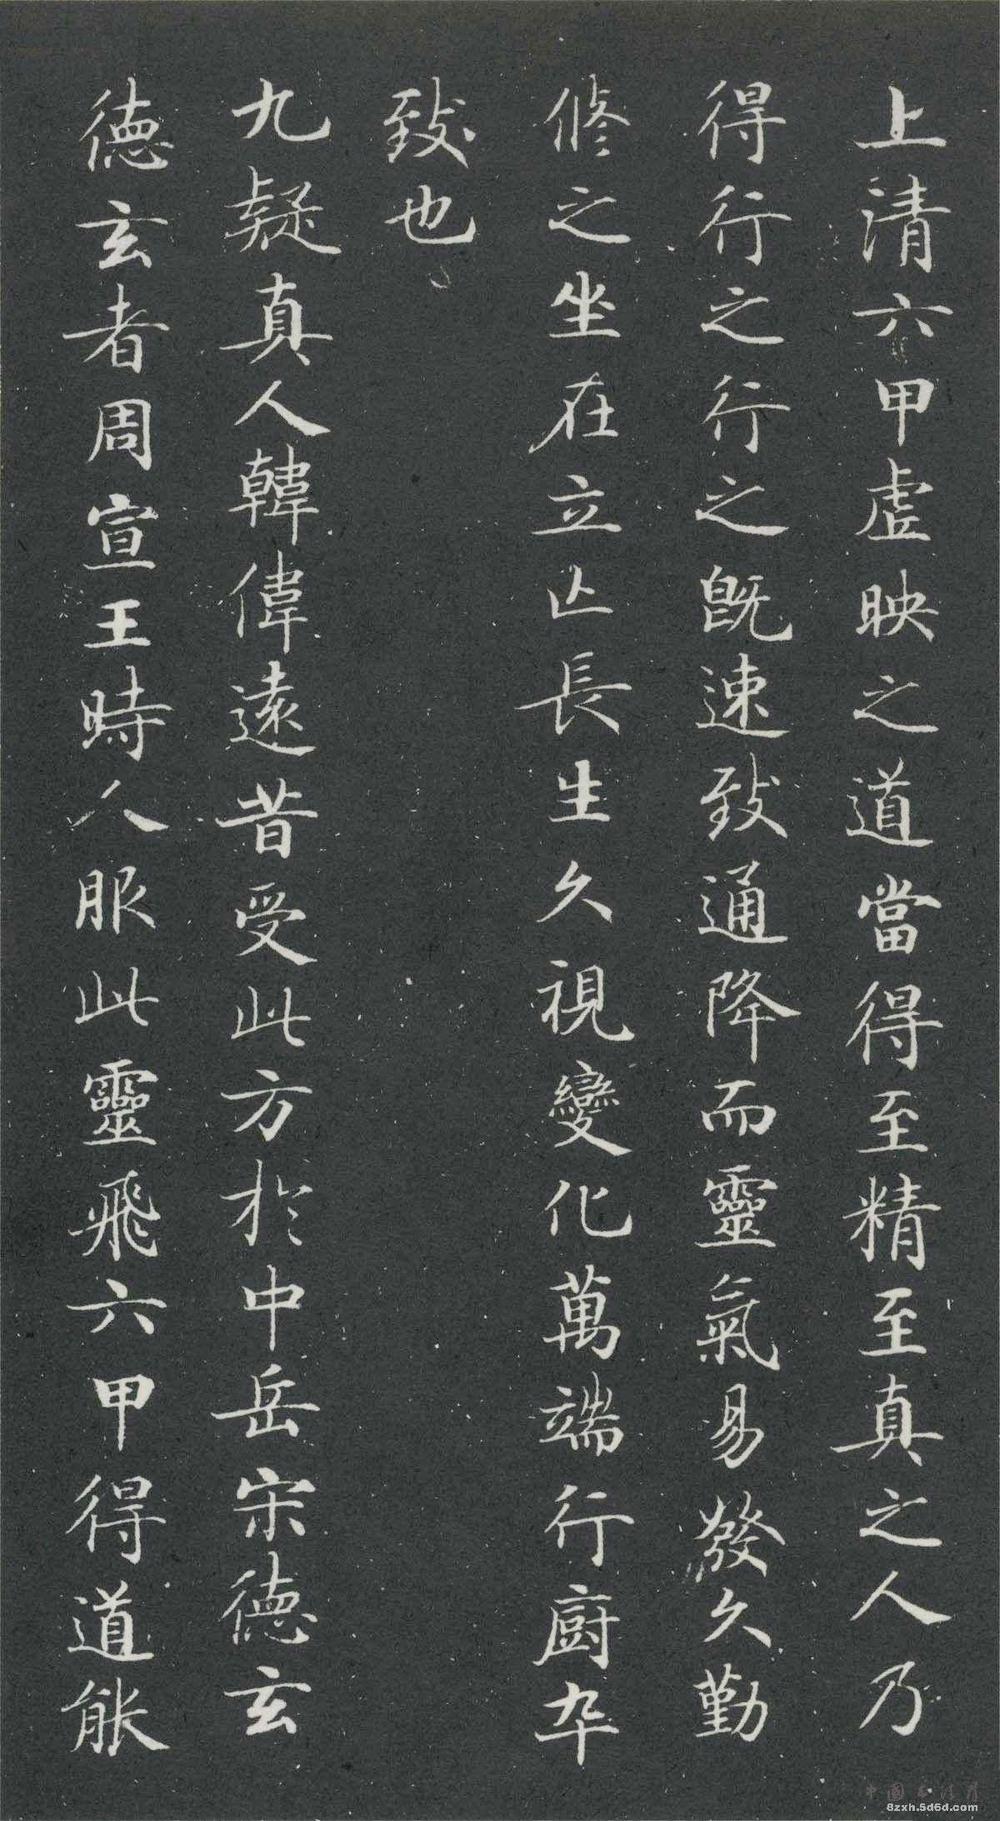 上清六甲虛映之道當得至精至真之人乃
得行之行之既速致通降而靈氣易發久勤
修之坐在立亾長生久視變化萬端行廚卒
致也
九疑真人韓偉遠昔受此方於中岳宋德玄
德玄者周宣王時人服此靈飛六甲得道能
8zxh.5d6d.com